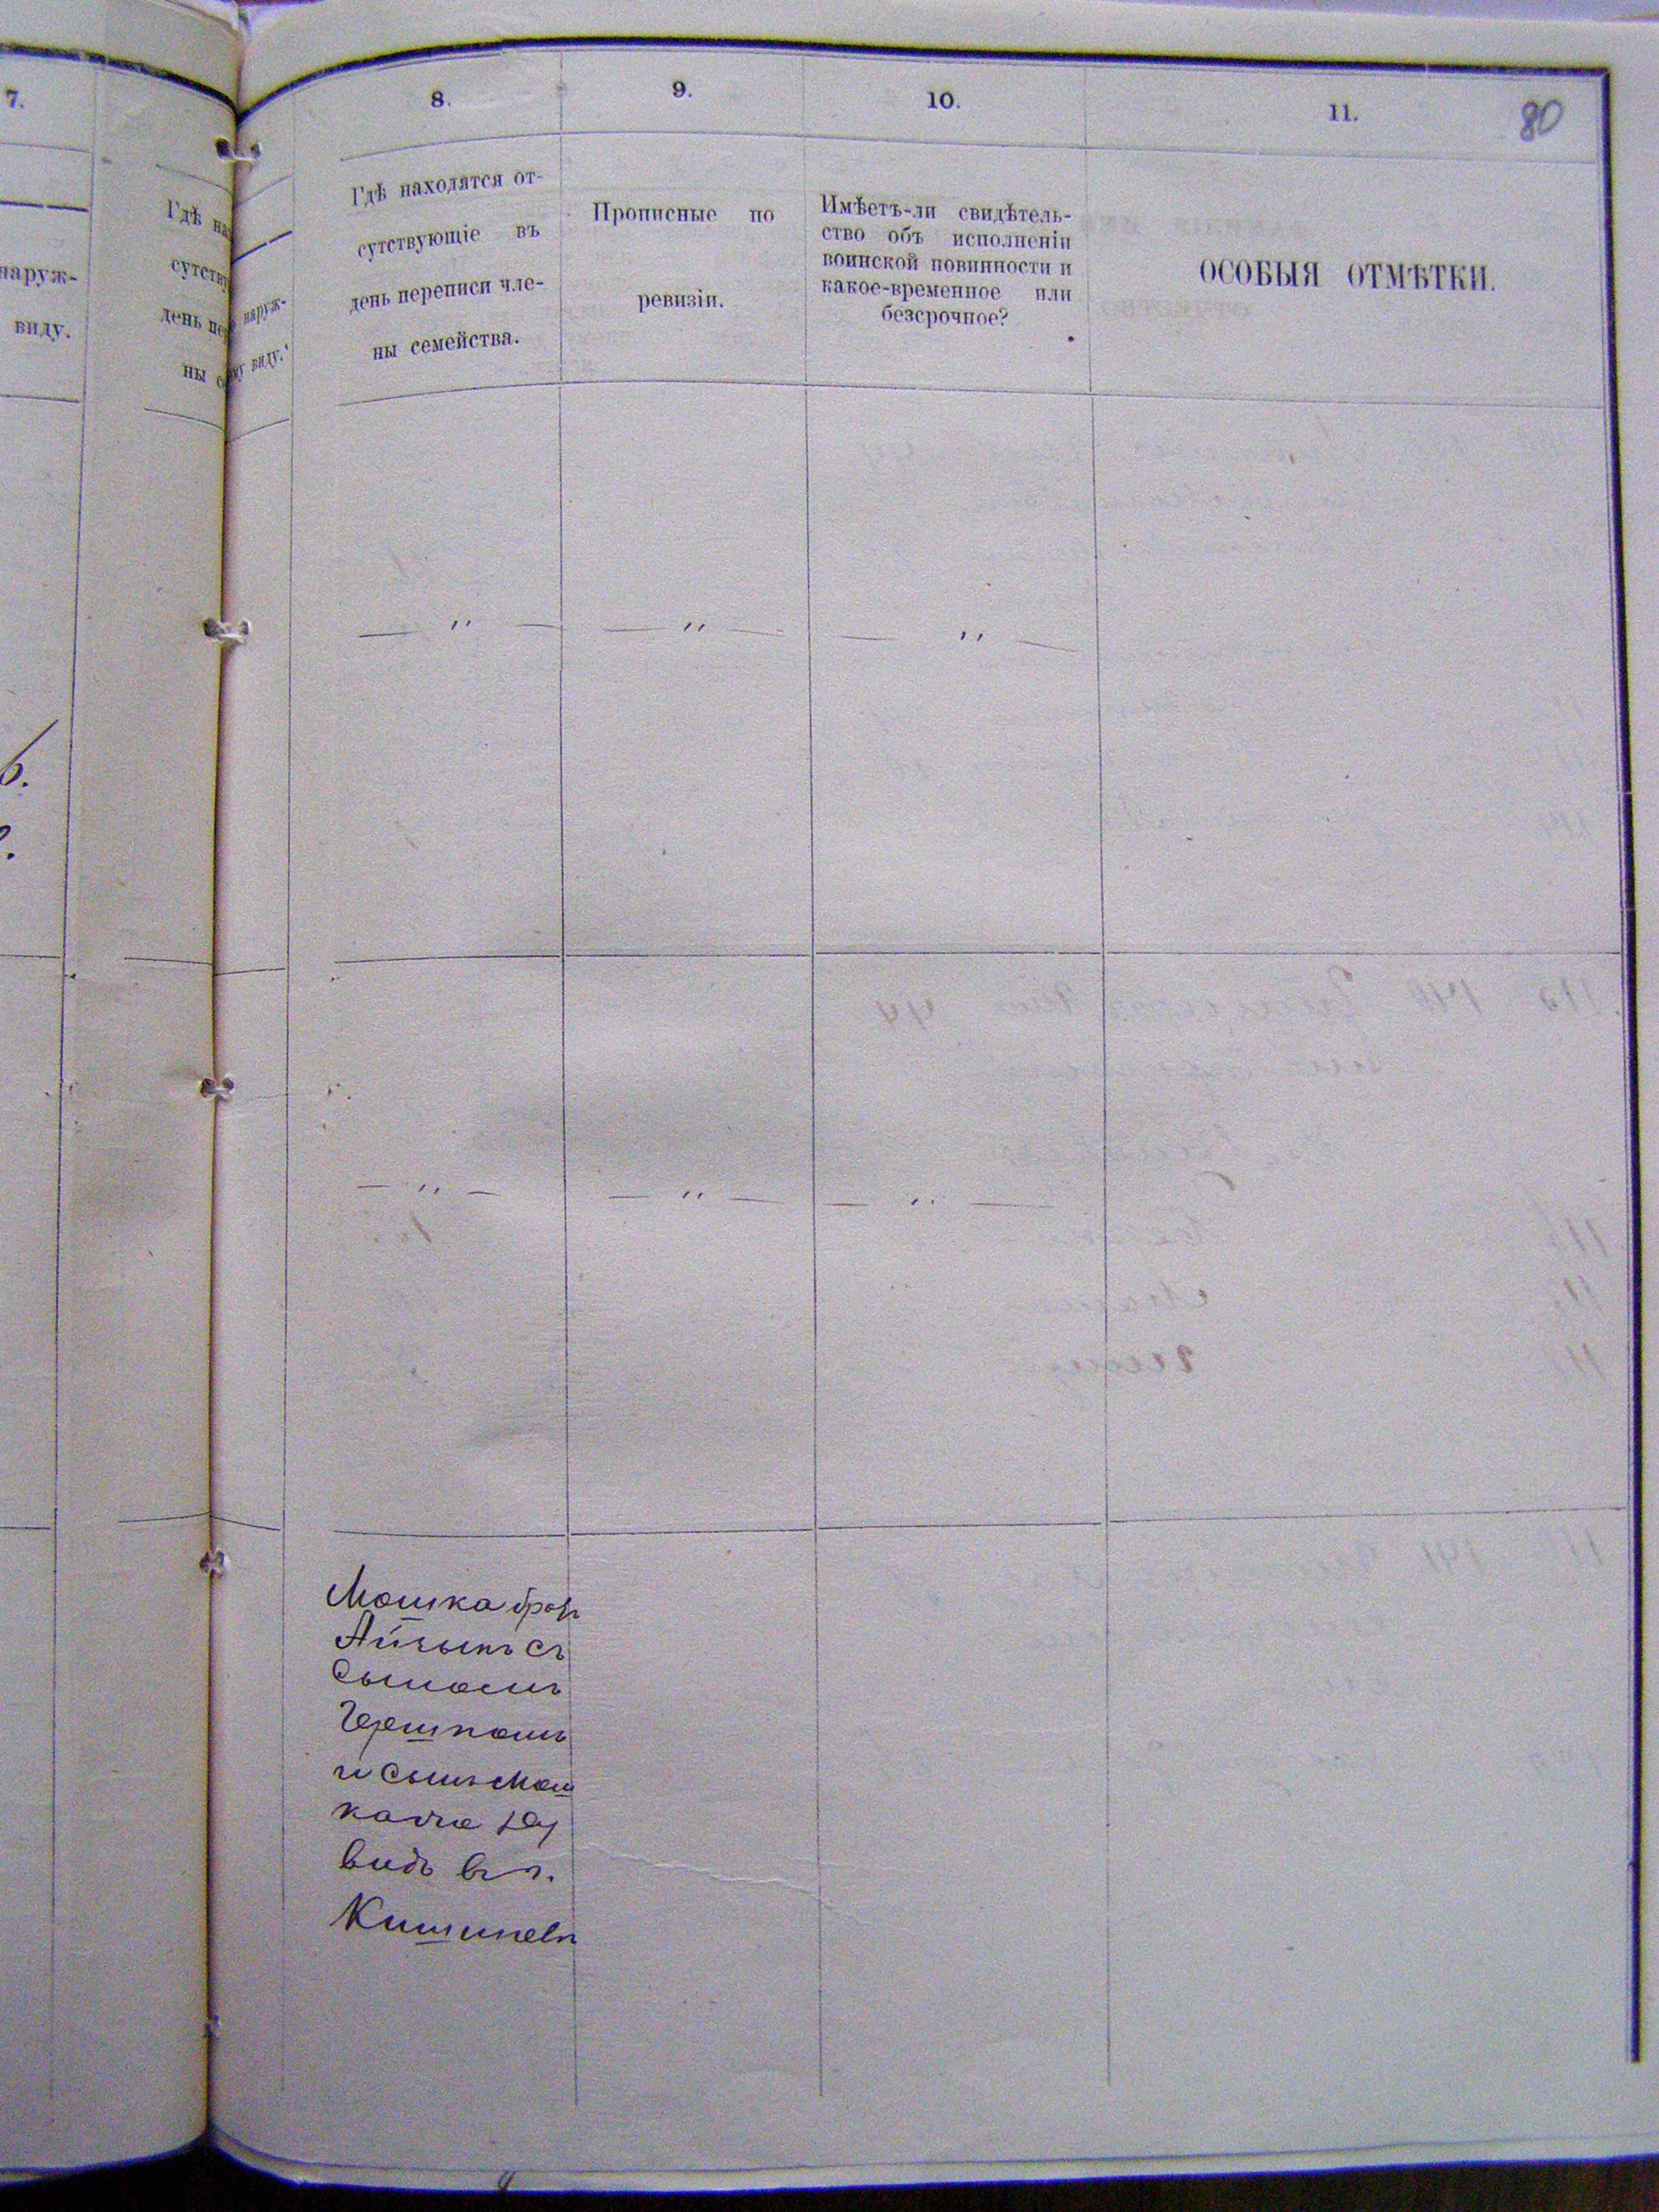 7.
наруж-
виду.
Гдѣ на
сутству
день пе
ны с
наруж-
виду.
8.
9.
10.
11.
80
Гдѣ находятся от-
сутствующіе въ
день переписи чле-
ны семейства.
Прописные по
ревизіи.
Имѣетъ-ли свидѣтель-
ство объ исполненіи
воинской повинности и
какое-временное или
безсрочное?
ОСОБЫЯ ОТМѢТКИ.
— " — — " — — " —
— " — — " — — " —
Мошка брат
Айзыкъ съ
сыномъ
Гершкомъ
и сынъ Мош
ка Да
видъ въ г.
Кишиневѣ